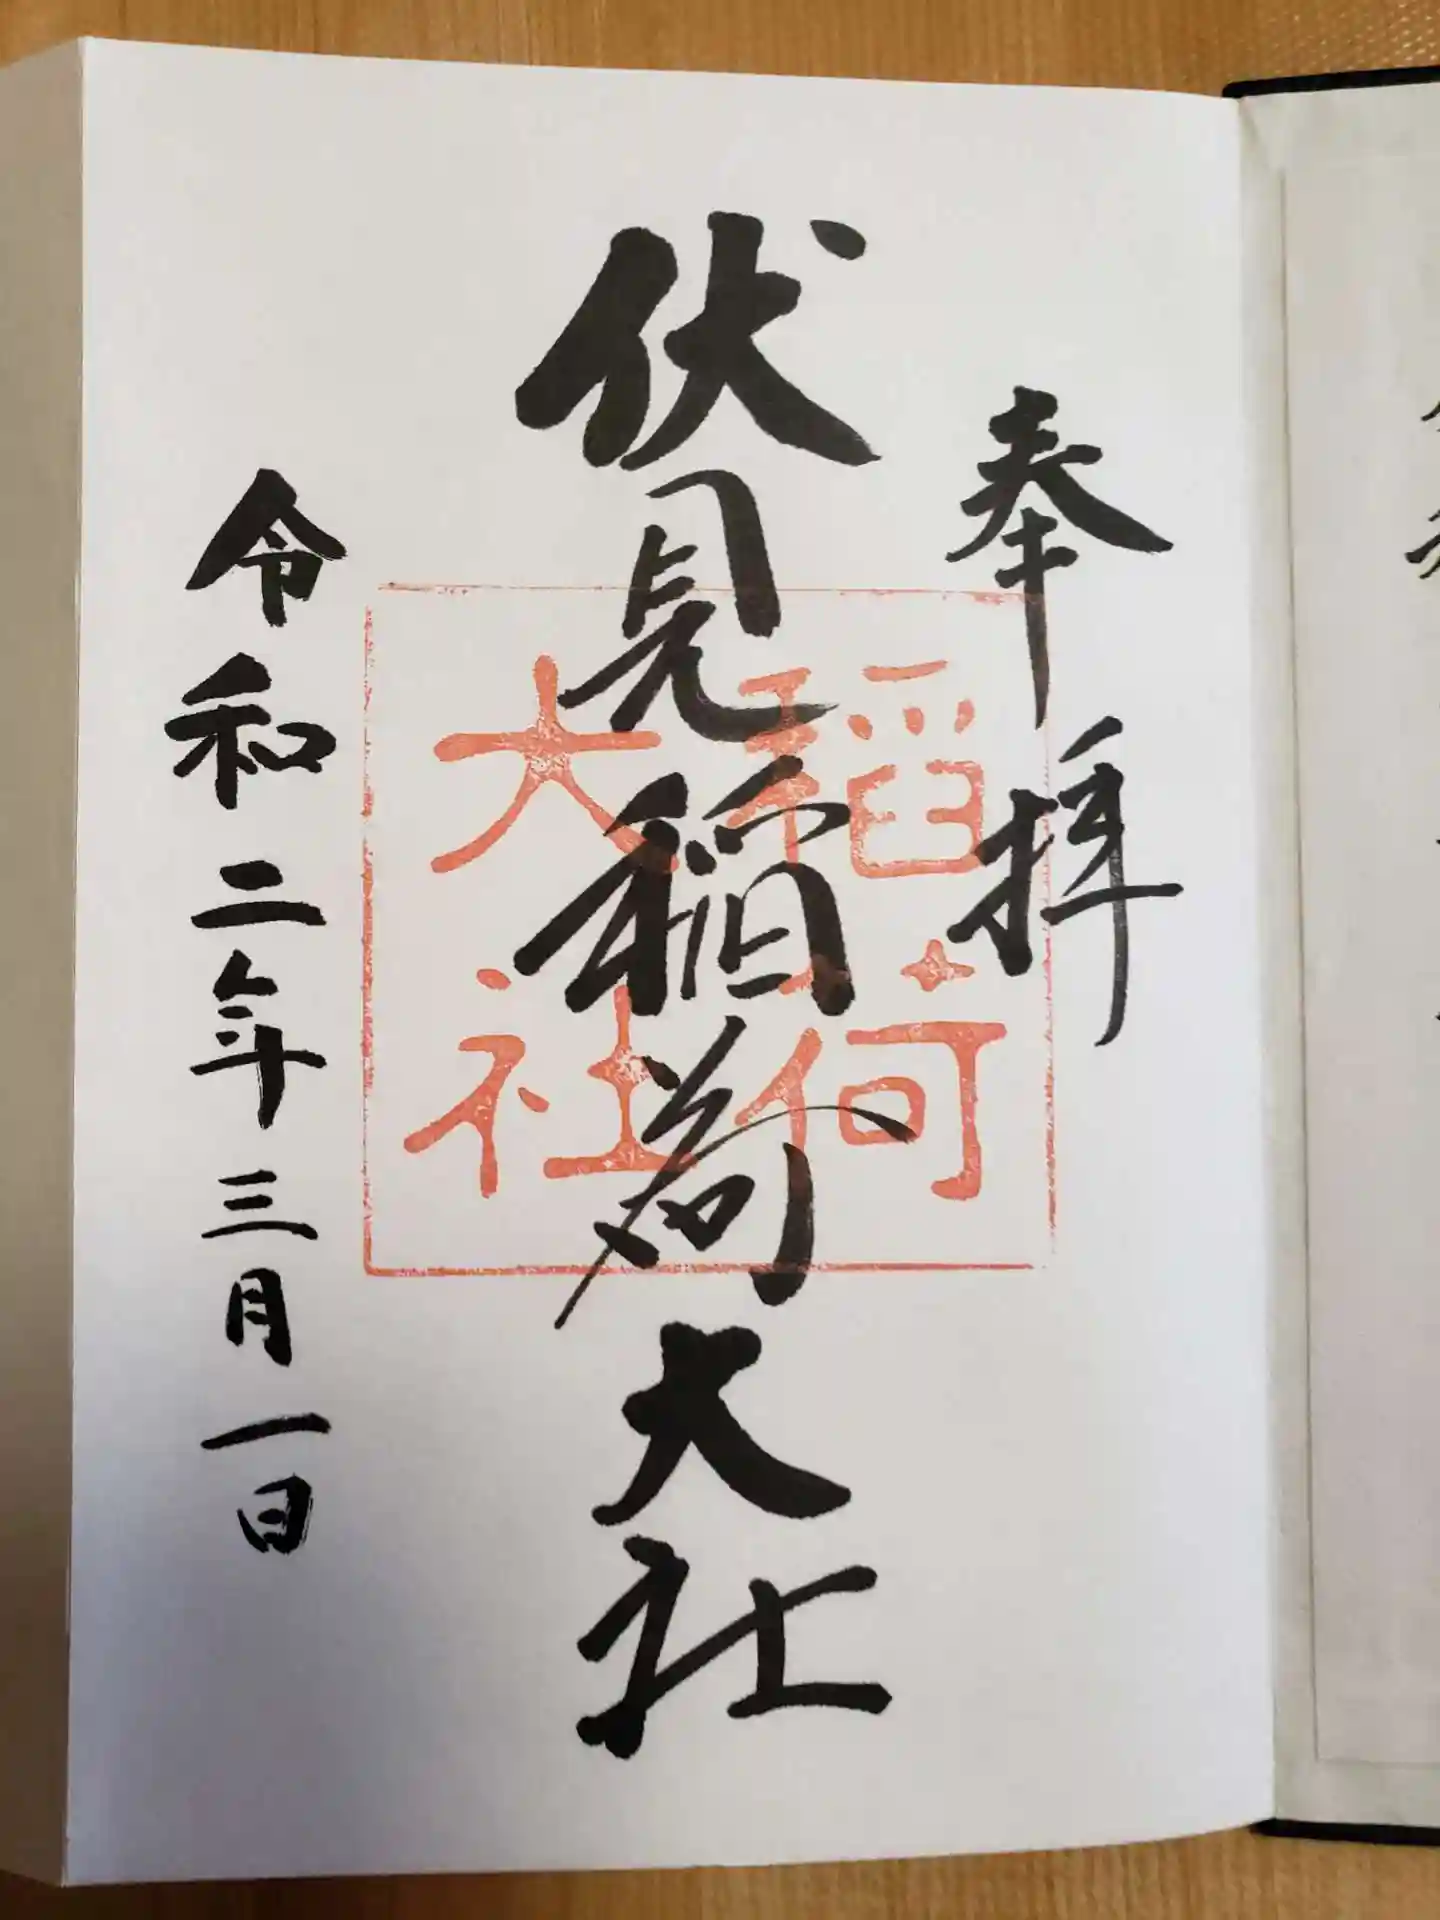 奉拝
伏見稲荷大社
稲荷
大社
令和二年三月一日